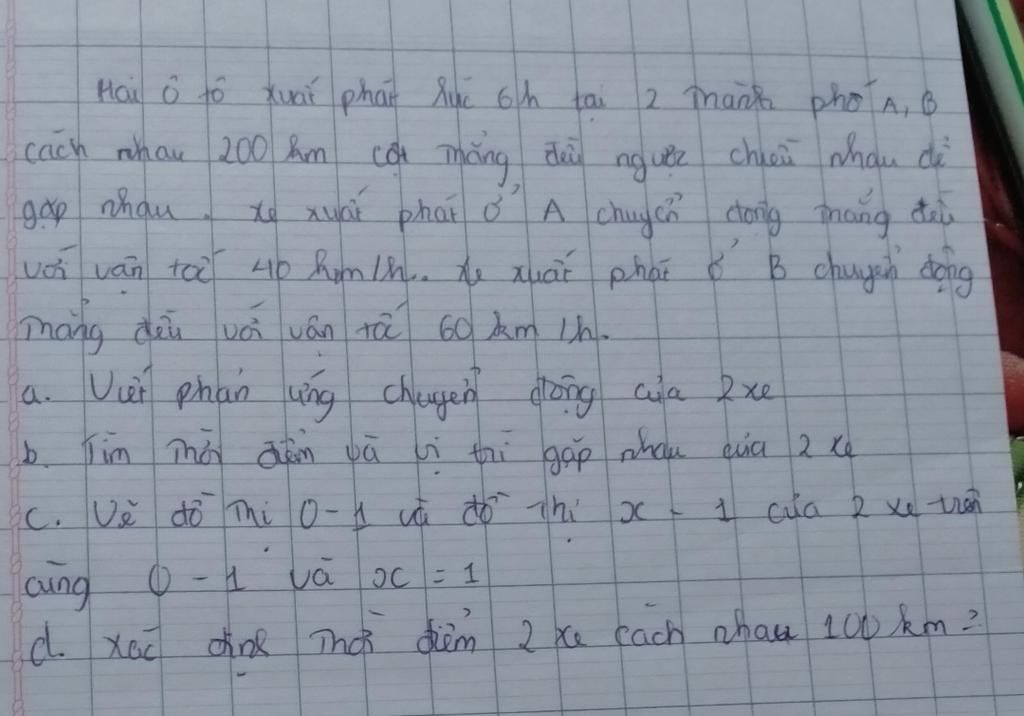 Hai ô tô xuất phát lúc 6h tại 2 thành phố A, B
cách nhau 200 km cđ thẳng đều ngược chiều nhau để
gặp nhau. xe xuất phát ở A chuyển động thẳng đều
với vận tốc 40 km/h.. xe xuất phát ở B chuyển động
thẳng đều với vân tốc 60 km/h.
a. Viết phản ứng chuyển động của 2 xe
b. Tìm thời điểm và vị trí gặp nhau của 2 xe
c. Vẽ đồ thị 0-1 và đồ thị x - 1 của 2 xe trên
cùng 0 - 1 và x = 1
d. xác định thời điểm 2 xe cách nhau 100 km?